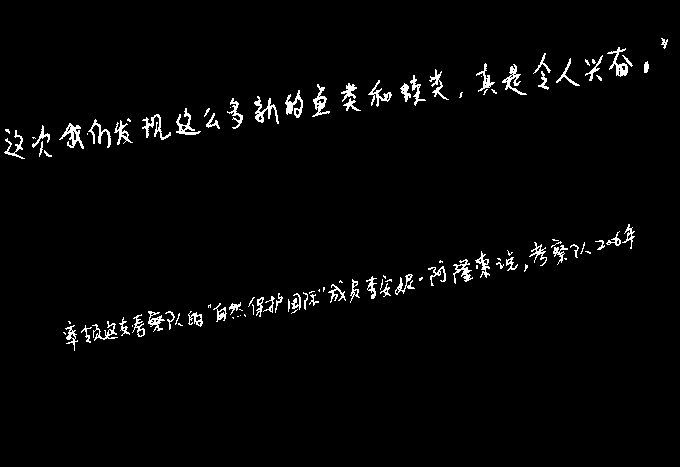 这次我们发现这么多新的鱼类和蛙类，真是令人兴奋。”
率领这支考察队的“自然保护国际”成员李安妮·阿隆索说，考察队2006年